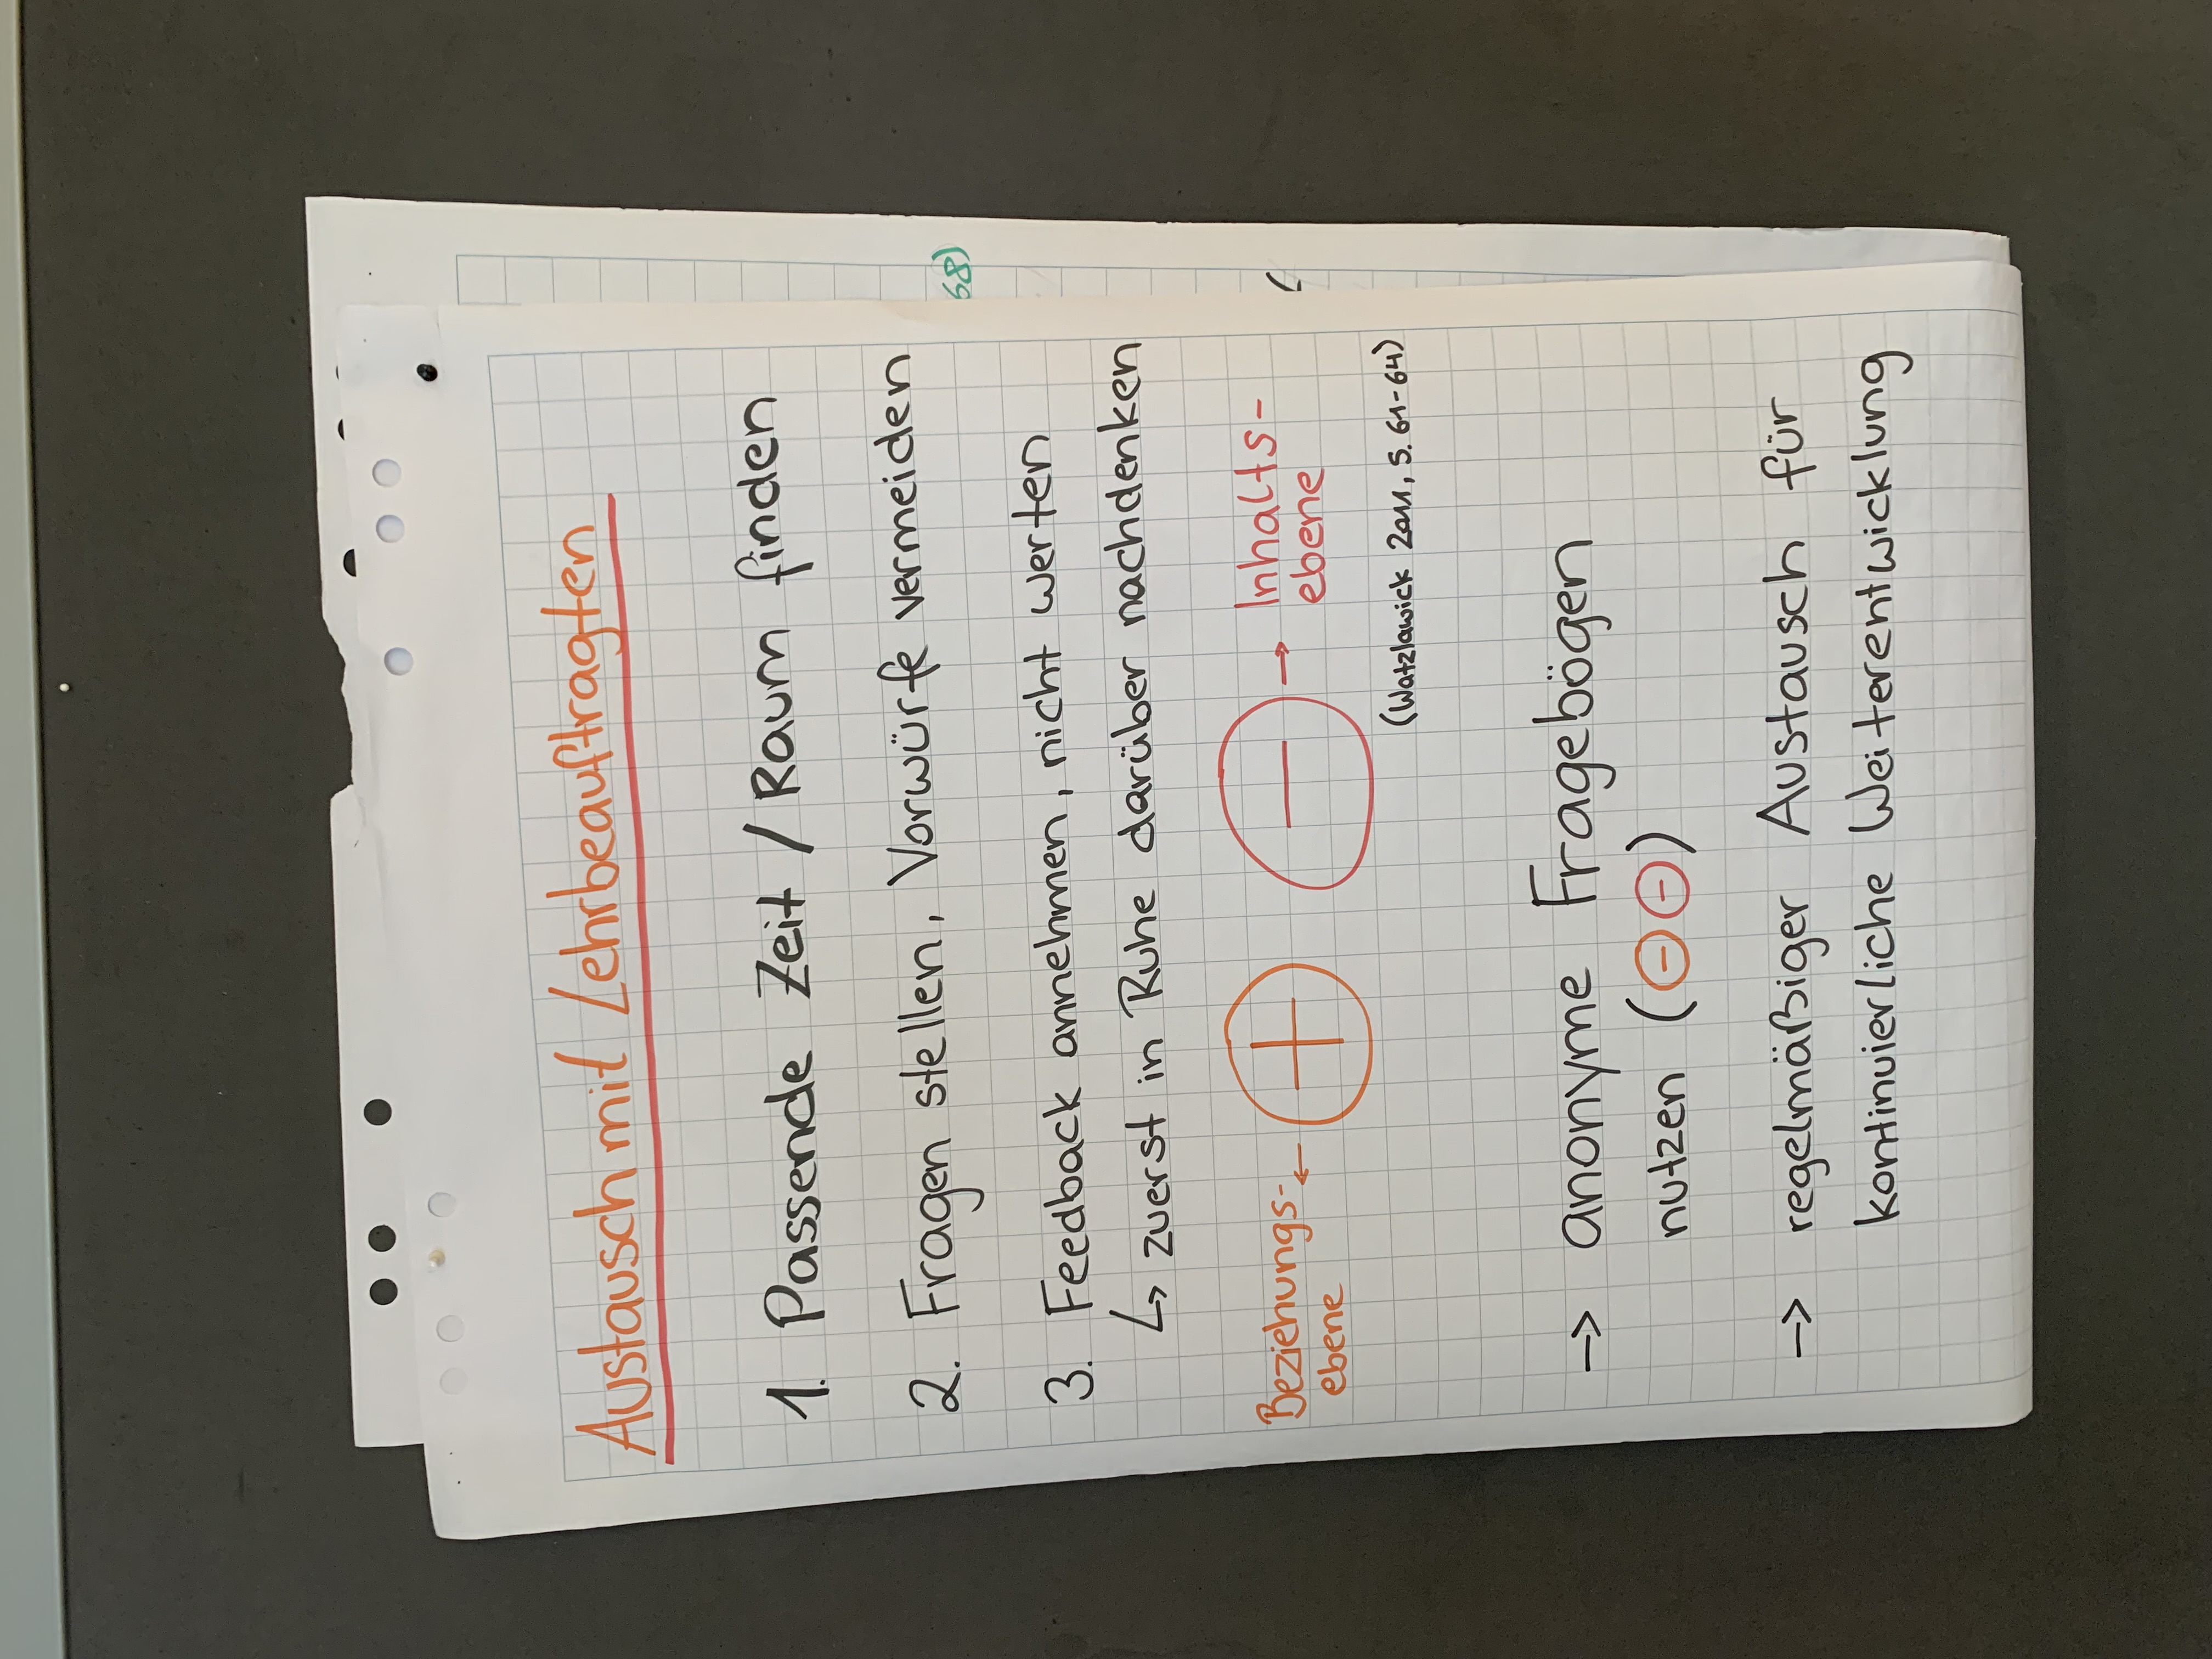 Austausch mit Lehrbeauftragten
1. Passende Zeit / Raum finden
2. Fragen stellen, Vorwürfe vermeiden
3. Feedback annehmen, nicht werten
↳ zuerst in Ruhe darüber nachdenken
Beziehungs- ← + − → Inhalts-
ebene ebene
(Watzlawick 2011, S. 61-64)
→ anonyme Fragebögen
nutzen (− −)
→ regelmäßiger Austausch für
kontinuierliche Weiterentwicklung
68)